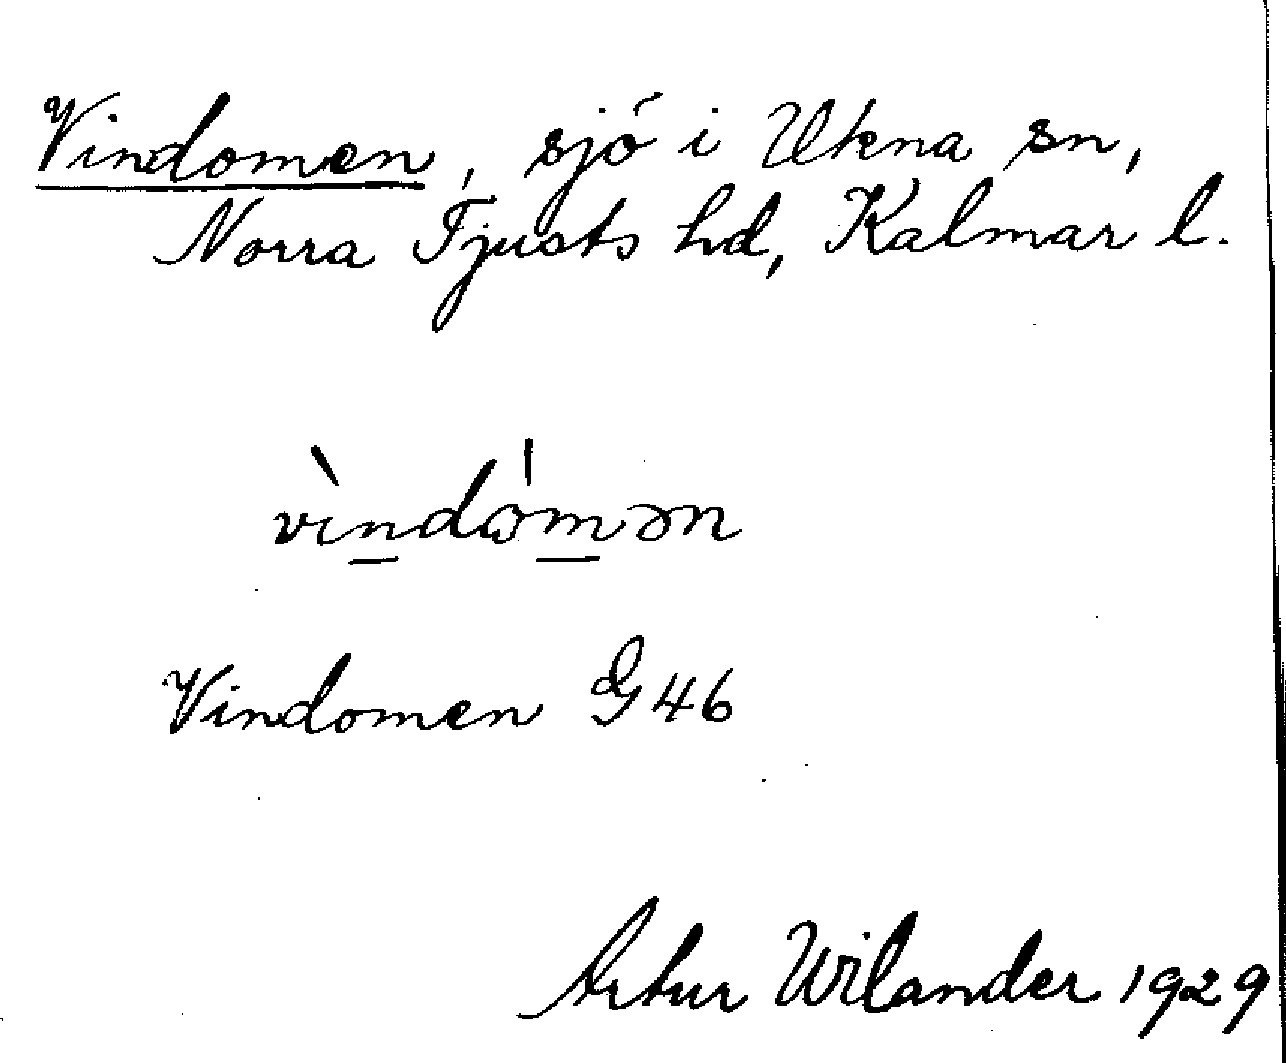 Vindomen, sjö i Ukna sn,
Norra Tjusts hd, Kalmar l.
vìndómən
Vindomen G46
Artur Wilander 1929